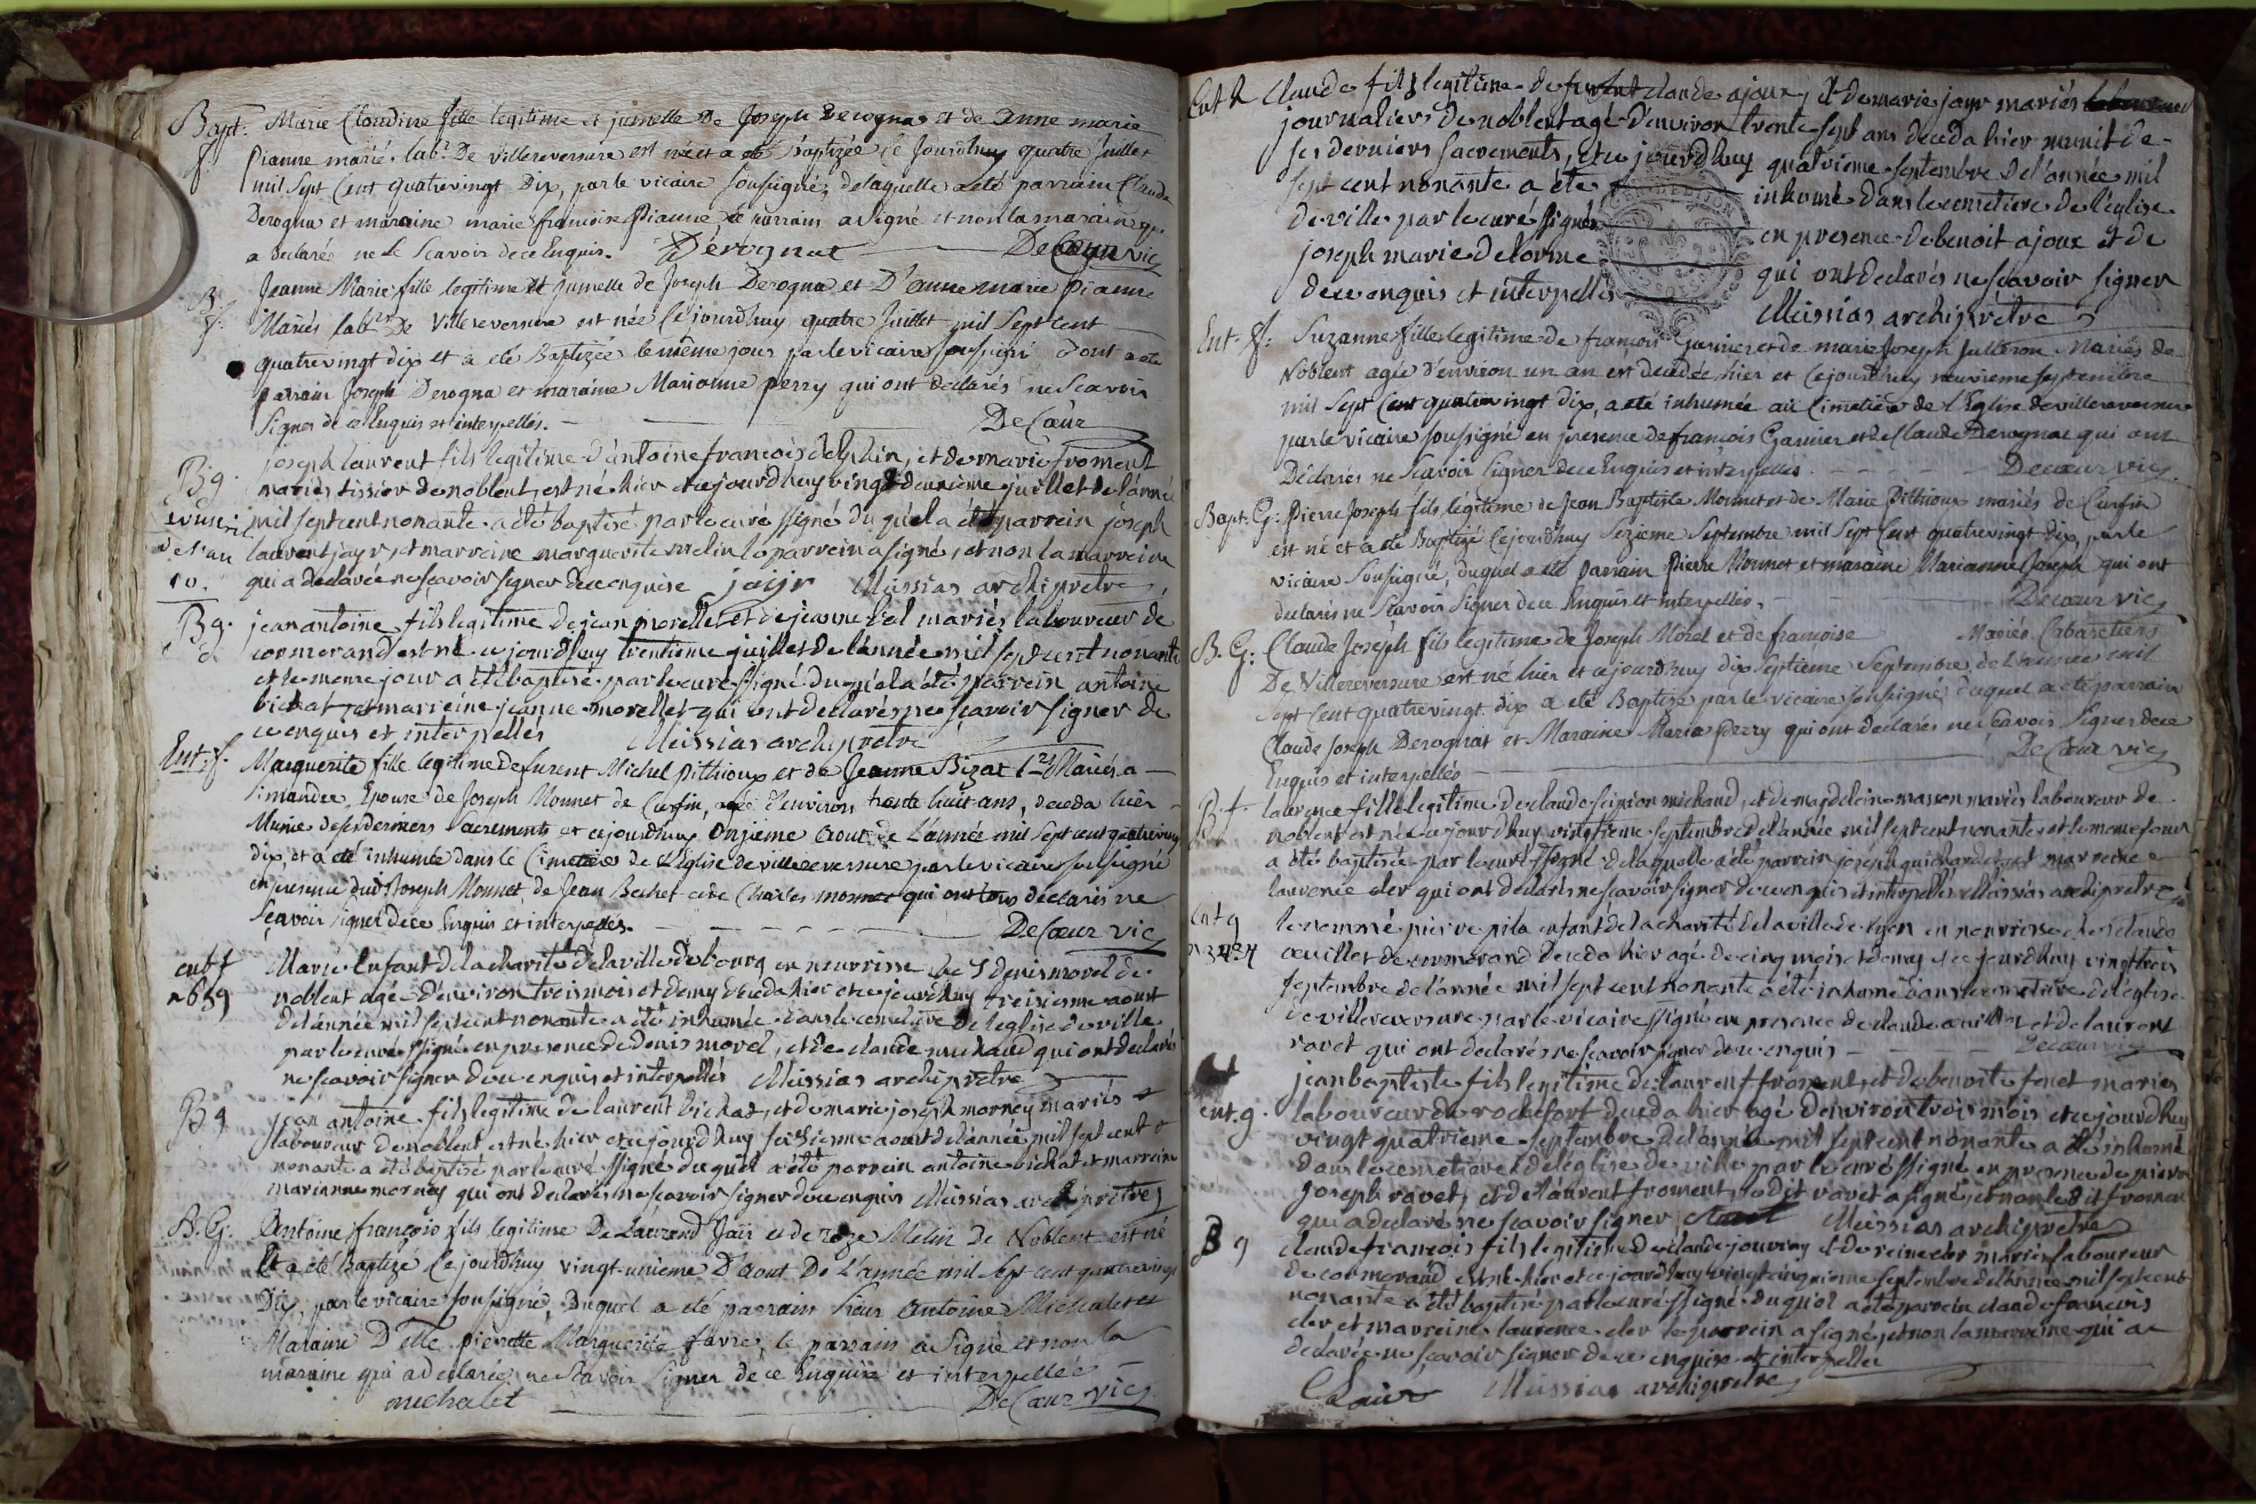 Bapt. Marie Claudine fille legitime et jumelle de Joseph Derognas et de Anne marie
f. Pianne mariés labr. De Villereversure est née et a eté baptizée ce Jourdhuy quatre Juillet
mil Sept Cent quatrevingt Dix, par le vicaire Soussigné, delaquelle a eté parrain Claude
Derogna et maraine marie francoise Pianne, le parrain a Signé et non la maraine qui
a declarée ne le Scavoir dece Enquis. Dérognat DeCœur vic
Jeanne Marie fille legitime et Jumelle de Joseph Derogna et D'anne marie Pianne
B. f. Mariés labr De Villereversure est née Cejourdhuy quatre Juillet mil Sept Cent
quatrevingt dix et a eté Baptizée le même jour par le vicaire soussigné dont a eté
parrain Joseph Derogna et maraine Marianne perry qui ont declarés ne Scavoir
Signer de ce Enquis et interpellés. DeCœur
joseph laurent fils legitime d'antoine francois delphin, et de marie froment
B g. mariés tissier de noblent, est né hier et cejourdhuy vingt deuxieme juillet de l'année
mil sept cent nonante a été baptisé par le curé ssigné du quel a été parrein joseph
de l'an laurent jayr, et marreine marguerite melin le parrein a signé, et non la marreine
10. qui a declarée ne scavoir signer de ce enquise jaijr Missias archipretre
B g. jean antoine fils legitime de jean morellet et de jeanne bel mariés laboureur de
cormorand est né cejourdhuy trentieme juillet de l'année mil sept cent nonante
et le meme jour a été baptisé par le curé ssigné du quel a été parrein antoine
bichat et marreine jeanne morellet qui ont declarés ne scavoir signer de
ce enquis et interpellés Missias archipretre
Ent. f. Marguerite fille legitime de furent Michel pithioux et de Jeanne Bizat Mariés a
simandre, Epouse de Joseph Monnet de Curfin, agée d'environ trente huit ans, deceda hier
Munie de ses derniers Sacrements et cejourdhuy Onzieme Aout de L'année mil Sept cent quatrevingt
dix, et a été inhumée dans le Cimetiere de L'Eglise de villereversure par le vicaire soussigné
en presence dud. Joseph Monnet, de Jean Bechet et de Charles monnet qui ont tous declarés ne
Scavoir signer de ce Enquis et interpellés. DeCœur vic
ent f Marie Enfant de la charité de la ville de bourg en nourrisse chez denis morel de
n 659 noblent agée d'environ trois mois et demy deceda hier et cejourdhuy treisieme aoust
de l'année mil sept cent nonante a été inhumée dans le cemetiere de l'eglise de ville
par le curé ssigné en presence de denis morel, et de claude michaud qui ont declarés
ne scavoir signer de ce enquis et interpellés Missias archipretre
B g jean antoine fils legitime de laurent bichat, et de marie joseph morney mariés
laboureur de noblent est né hier et cejourdhuy seisieme aoust de l'année mil sept cent
nonante a été baptisé par le curé ssigné du quel a été parrein antoine bichat et marreine
marianne morney qui ont declarés ne scavoir signer de ce enquis Missias archipretre
B. G. Antoine françois fils legitime De Laurend Jaÿr et de roze Melin de Noblent est né
Et a eté Baptizé Cejourdhuy vingt unieme D'aout De L'année mil Sept cent quatrevingt
Dix, par le vicaire Soussigné, Duquel a eté parrain Sieur Antoine Michalet et
Maraine Delle pierrette Marguerite favre, le parrain a Signé et non la
maraine qui a declarée ne Scavoir Signer de ce Enquise et interpellée
michalet DeCœur vic
Ent g Claude fils legitime de furent claude ajoux, et de marie jayr mariés
journaliers de noblent agé d'environ trente sept ans deceda hier munit de
ses derniers sacrements, et ce jourdhuy quatrieme septembre de l'année mil
sept cent nonante a été inhumé dans le cemetiere de l'eglise
de ville par le curé ssigné en presence de benoit ajoux et de
joseph marie delorme qui ont declarés ne scavoir signer
de ce enquis et interpellés Missias archipretre
Ent. f. Suzanne fille legitime de françois Garnier et de marie Joseph Julleron Mariés de
Noblent agée d'environ un an est decedée hier et Cejourdhuy neuvieme Septembre
mil Sept Cent quatrevingt dix, a eté inhumée au Cimetiere de l'Eglise de villereversure
par le vicaire soussigné en presence de francois Garnier et de Claude Derognat qui ont
Declarés ne Scavoir Signer de ce Enquis et interpellés. Decœur vic
Bapt. G. Pierre Joseph fils légitime de Jean Baptiste Monnet et de Marie Pithioux mariés de Curfin
est né et a eté Baptizé Cejourdhuy Seizieme Septembre mil Sept Cent quatrevingt dix, par le
vicaire Soussigné, duquel a eté parrain Pierre Monnet et maraine Marianne Joseph qui ont
declarés ne Scavoir Signer de ce Enquis et interpellés. Decœur vic
B. G: Claude Joseph fils legitime de Joseph Morel et de françoise Mariés Cabaretiers
De Villereversure est né hier et cejourdhuy dix Septieme Septembre de l'année mil
Sept Cent quatrevingt dix a eté Baptizé par le vicaire soussigné duquel a eté parrain
Claude Joseph Derognat et Maraine Marie Perry qui ont declarés ne Scavoir Signer de ce
Enquis et interpellés DeCœur vic
B. f. laurence fille legitime de claude scipion michaud, et de magdeleine masson mariés laboureur de
noblent est née cejourdhuy vingtieme septembre de l'année mil sept cent nonante et le meme jour
a été baptisée par le curé ssigné de laquelle a été parrein joseph guichardet et marreine
laurence cler qui ont declarés ne scavoir signer de ce enquis et interpellés Missias archipretre
Ent g le nommé pierre pila enfant de la charité de la ville de lyon en nourrisse chez claude
n 3434 œuillet de cormorand deceda hier agé de cinq mois et demy et ce jourdhuy vingt trois
septembre de l'année mil sept cent nonante a été inhumé dans le cemetiere de l'eglise
de villereversure par le vicaire ssigné en presence de claude œuillet et de laurent
ravet qui ont declarés ne scavoir signer de ce enquis Decœur vic
jean baptiste fils legitime de laurent froment, et de benoite fenet mariés
ent. g. laboureur de rochefort deceda hier agé d'environ trois mois et cejourdhuy
vingt quatrieme septembre de l'année mil sept cent nonante a été inhumé
dans le cemetiere de l'eglise de ville par le curé ssigné en presence de pierre
joseph ravet, et de laurent froment, ledit ravet a signé, et non ledit froment
qui a declaré ne scavoir signer Missias archipretre
B g claude francois fils legitime de claude jouvray et de reine cler mariés laboureur
de cormorand est né hier et ce jourdhuy vingt cinquieme septembre de l'année mil sept cent
nonante a été baptisé par le curé ssigné du quel a été parrein claude francois
cler et marreine laurence cler le parrein a signé, et non la marreine qui a
declarée ne scavoir signer de ce enquise et interpellée
Missias archipretre